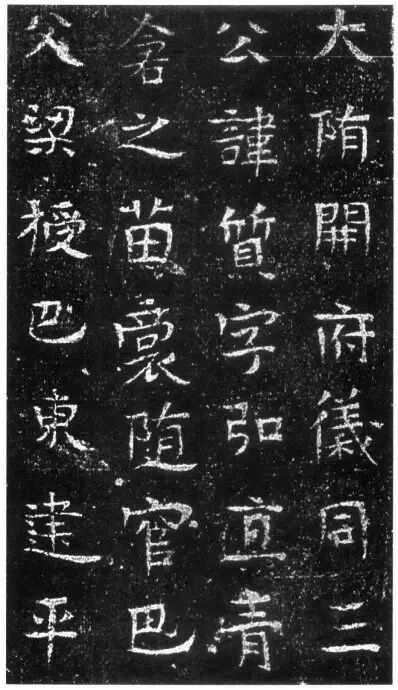 大隋開府儀同三
公諱質字弘直青
侖之苗裔随官巴
父梁授巴東建平